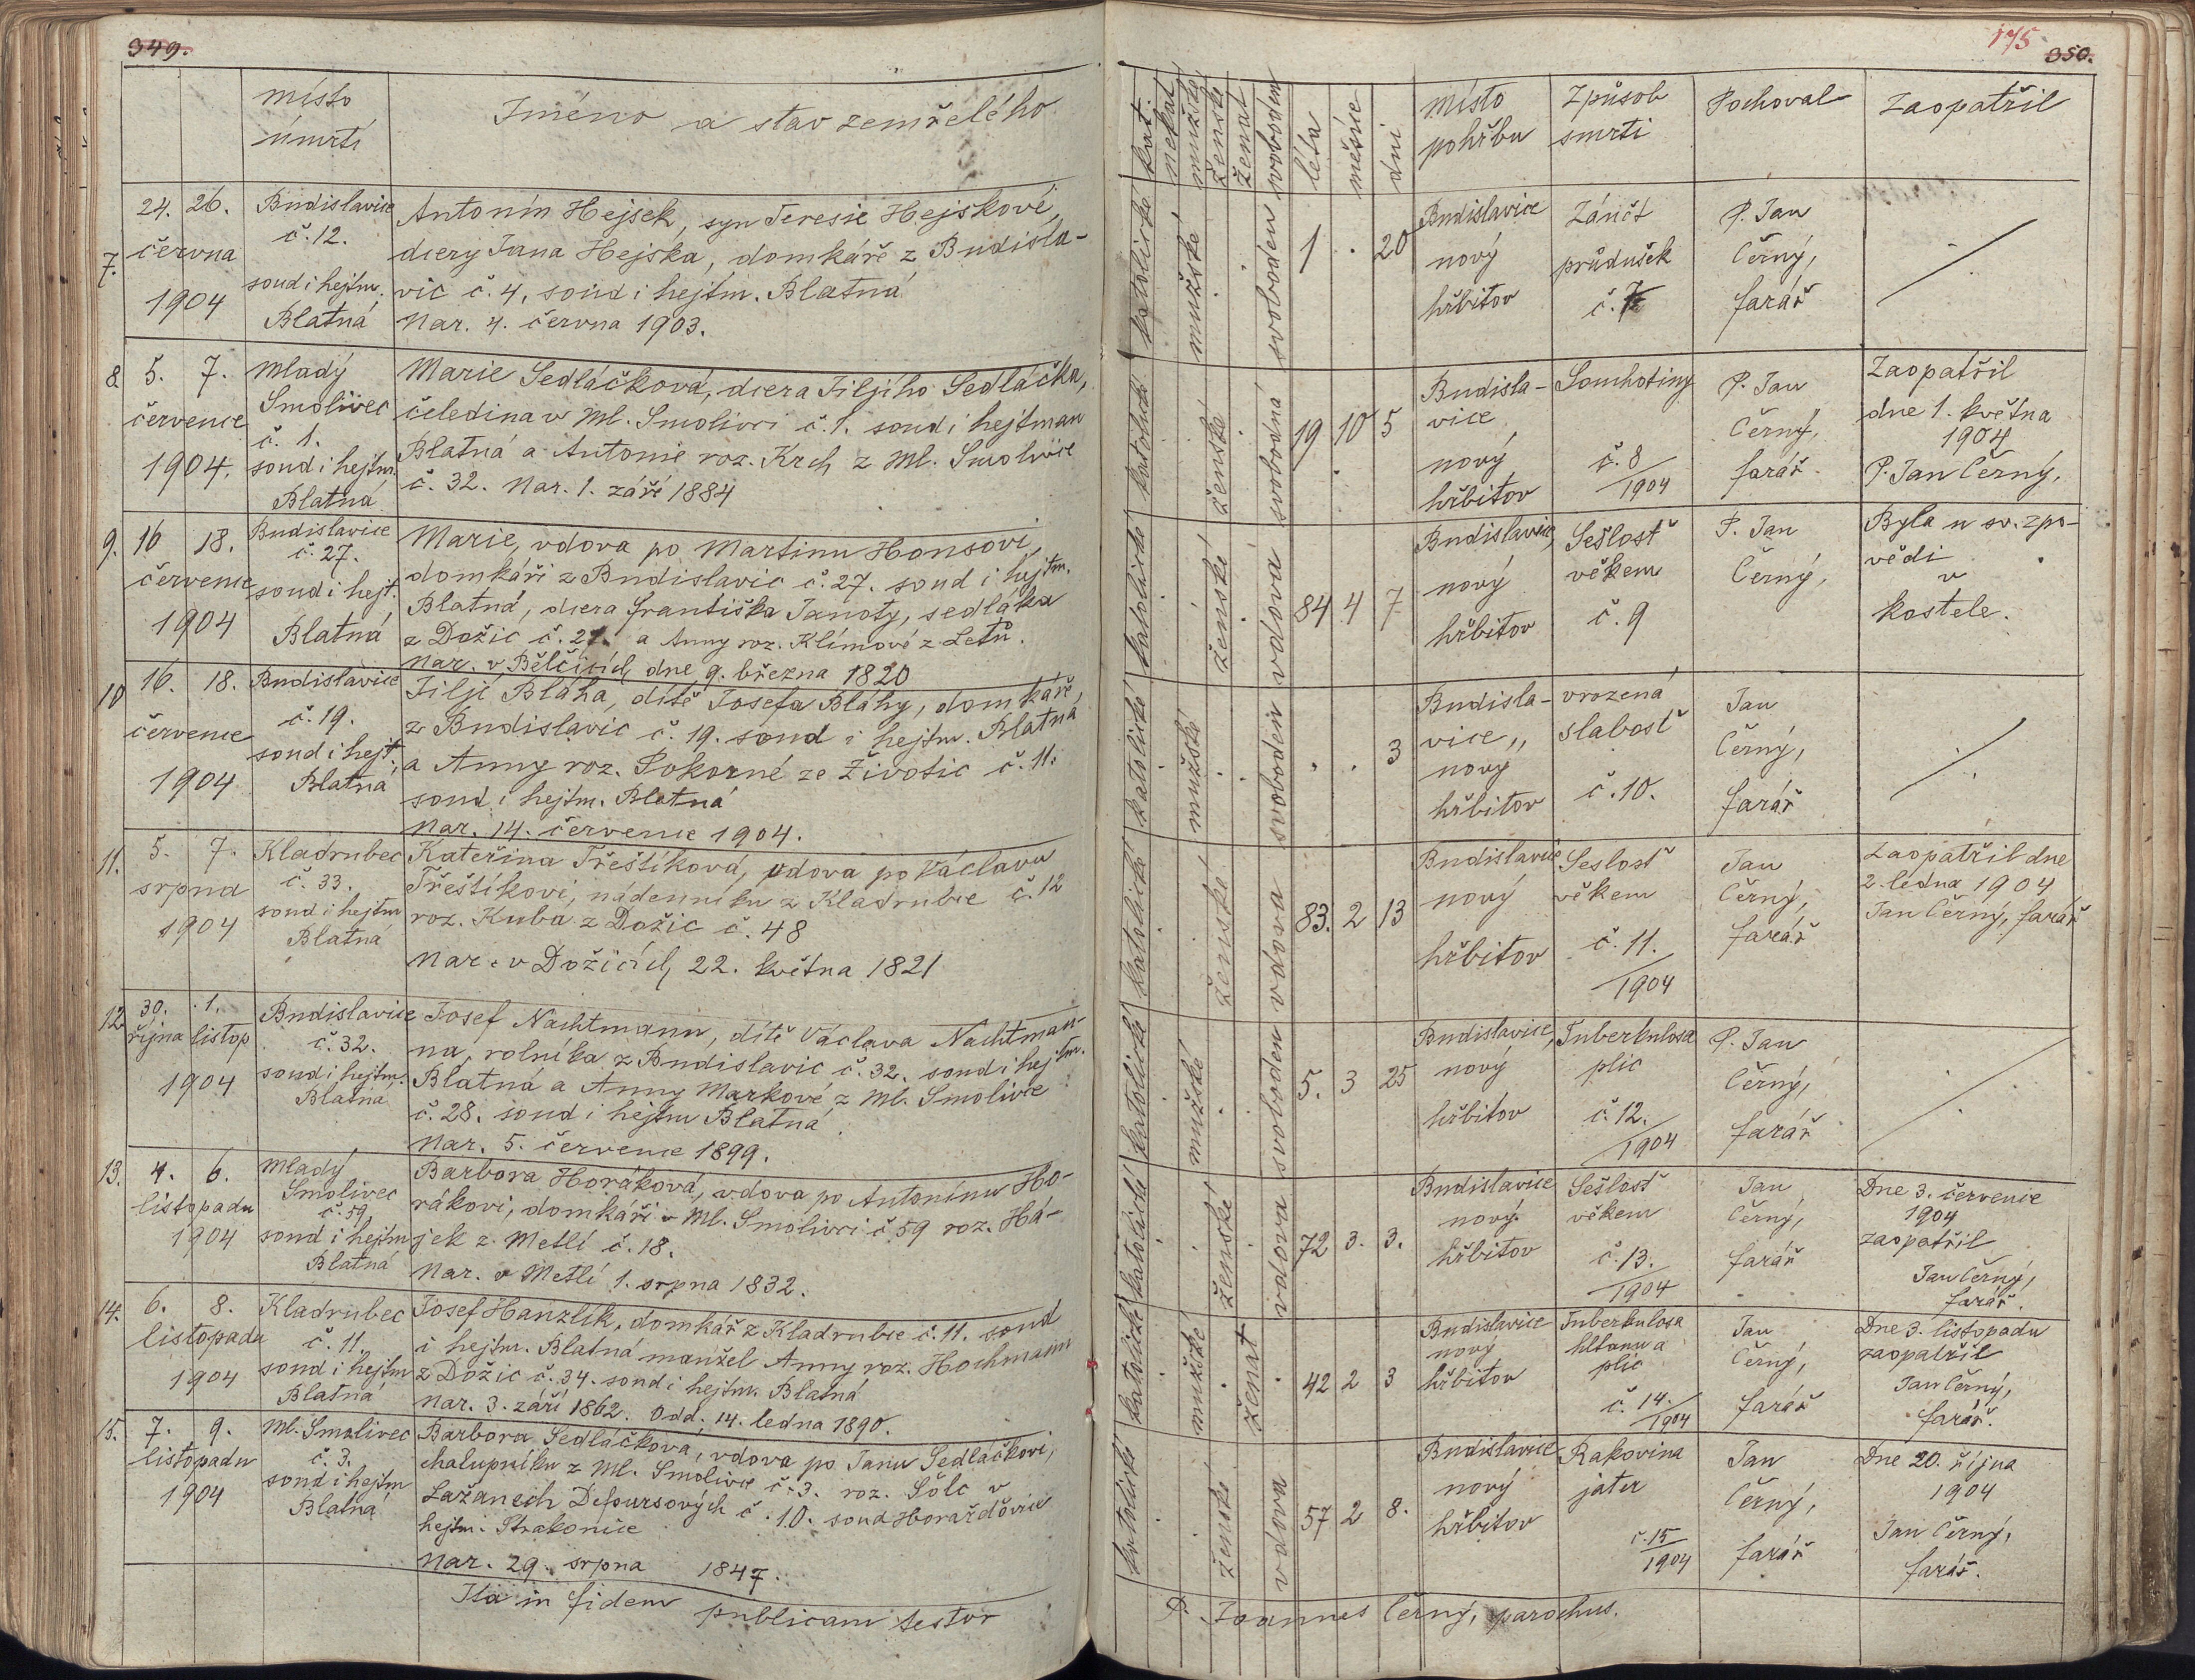 349.
místo
úmrtí
Jméno a stav zemřelého
7.
24. 26.
června
1904
Budislavice
č. 12.
soud i hejtm.
Blatná
Antonín Hejsek, syn Teresie Hejskové,
dcery Jana Hejska, domkáře z Budisla-
vic č. 4, soud i hejtm. Blatná
Nar. 4. června 1903.
8.
5. 7.
července
1904.
Mladý
Smolivec
č. 1.
soud i hejtm.
Blatná
Marie Sedláčková, dcera Jiljího Sedláčka,
čeledína v Ml. Smolivci č. 1. soud i hejtman
Blatná a Antonie roz. Krch z Ml. Smolivce
č. 32. Nar. 1. září 1884
9.
16 18.
července
1904
Budislavice
č. 27.
soud i hejt.
Blatná
Marie, vdova po Martinu Honsovi,
domkáři z Budislavic č. 27. soud i hejtm.
Blatná, dcera Františka Janoty, sedláka
z Dožic č. 27. a Anny roz. Klímové z Letů.
Nar. v Bělčicích, dne 9. března 1820
10
16. 18.
července
1904
Budislavice
č. 19.
soud i hejt.
Blatná
Jiljí Bláha, dítě Josefa Bláhy, domkáře,
z Budislavic č. 19. soud i hejtm. Blatná
a Anny roz. Pokorné ze Životic č. 11.
soud i hejtm. Blatná
Nar. 14. července 1904.
11.
5. 7.
srpna
1904
Kladrubec
č. 33.
soud i hejtm
Blatná
Kateřina Třeštíková, vdova po Václavu
Třeštíkovi, nádenníku z Kladrubce č. 12
roz. Kuba z Dožic č. 48
Nar. v Dožicích, 22. května 1821
12.
30. 1.
října listop
1904
Budislavice
č. 32.
soud i hejtm.
Blatná
Josef Nachtmann, dítě Václava Nachtman-
na, rolníka z Budislavic č. 32. soud i hejtm.
Blatná a Anny Markové z Ml. Smolivce
č. 28. soud i hejtm Blatná.
Nar. 5. července 1899.
13.
4. 6.
listopadu
1904
Mladý
Smolivec
č. 59
soud i hejtm
Blatná
Barbora Horáková, vdova po Antonínu Ho-
rákovi, domkáři v Ml. Smolivci č. 59 roz. Há-
jek z Metlí č. 18.
Nar. v Metlí 1. srpna 1832.
14.
6. 8.
listopadu
1904
Kladrubec
č. 11.
soud i hejtm
Blatná
Josef Hanzlík, domkář z Kladrubce č. 11. soud
i hejtm. Blatná manžel Anny roz. Hochmann
z Dožic č. 34. soud i hejtm. Blatná
Nar. 3. září 1862. Odd. 14. ledna 1890.
15.
7. 9.
listopadu
1904
Ml. Smolivec
č. 3.
soud i hejtm
Blatná
Barbora Sedláčková, vdova po Janu Sedláčkovi,
chalupníku z Ml. Smolivce č. 3. roz. Šolc v
Lažanech Defoursových č. 10. soud Horažďovice
hejtm. Strakonice
Nar. 29. srpna 1847.
Ita in fidem publicam testor
175
350.
kat.
nekat
mužské
ženské
ženat
svoboden
léta
měsíce
dni
místo
pohřbu
Způsob
smrti
Pochoval
Zaopatřil
katolické
mužské
svoboden
1 . 20
Budislavice
nový
hřbitov
Zánět
průdušek
č. 7
P. Jan
Černý,
farář
katolické
ženské
svobodná
19 10 5
Budisla-
vice
nový
hřbitov
Souchotiny
č. 8
1904
P. Jan
Černý,
farář.
Zaopatřil
dne 1. května
1904
P. Jan Černý,
katolické
ženské
vdova
84 4 7
Budislavice,
nový
hřbitov
Sešlosť
věkem
č. 9
P. Jan
Černý,
Byla u sv. zpo-
vědi
v
kostele.
katolické
mužské
svoboden
. . 3
Budisla-
vice,,
nový
hřbitov
vrozená
slabosť
č. 10.
Jan
Černý,
farář
katolické
ženské
vdova
83. 2 13
Budislavice
nový
hřbitov
Seslosť
věkem
č. 11.
1904
Jan
Černý,
farář
Zaopatřil dne
2. ledna 1904
Jan Černý, farář
katolické
mužské
svoboden
5. 3 25
Budislavice,
nový
hřbitov
Tuberkulosa
plic
č. 12.
1904
P. Jan
Černý,
farář
katolické
ženské
vdova
72 3. 3.
Budislavice
nový
hřbitov
Sešlosť
věkem
č. 13.
1904
Jan
Černý,
farář
Dne 3. července
1904
zaopatřil
Jan Černý,
farář.
katolické
mužské
ženat
42 2 3
Budislavice
nový
hřbitov
Tuberkulosa
hltanu a
plic
č. 14.
1904
Jan
Černý,
farář
Dne 3. listopadu
zaopatřil
Jan Černý,
farář.
katolické
ženské
vdova
57 2 8.
Budislavice
nový
hřbitov
Rakovina
jater
č. 15
1904
Jan
Černý,
farář
Dne 20. října
1904
Jan Černý,
farář.
P. Joannes Černý, parochus.